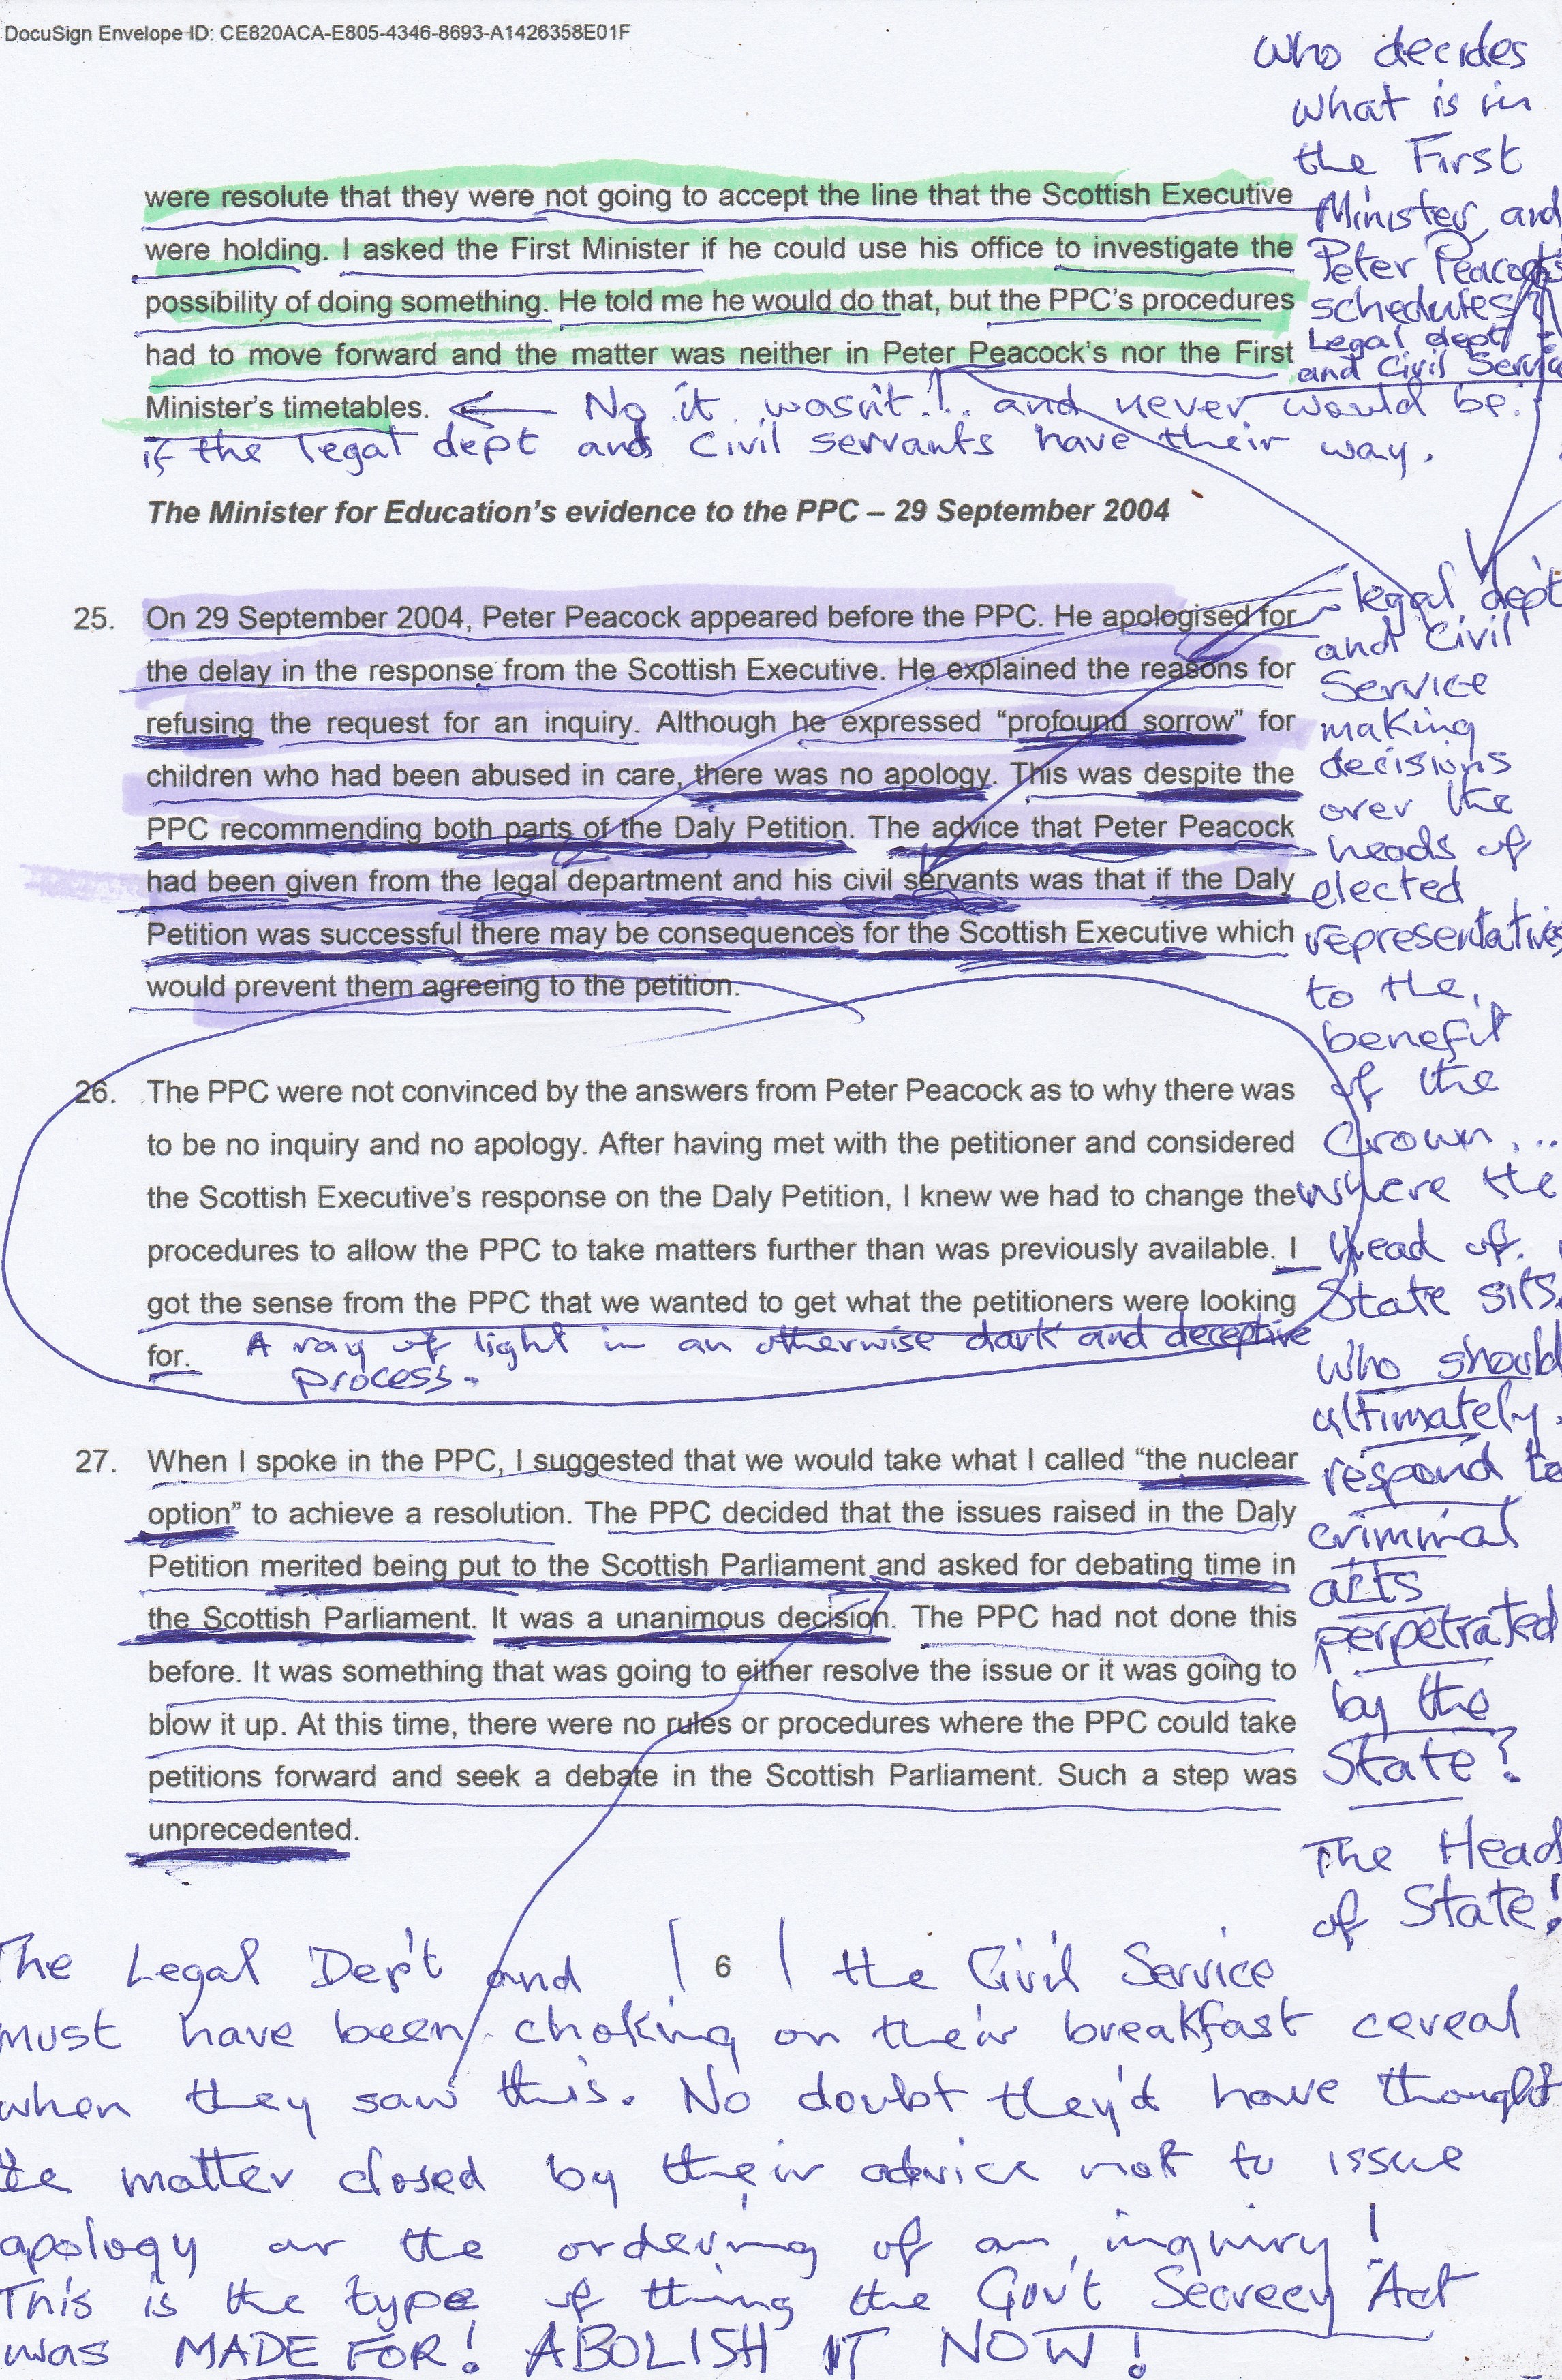 DocuSign Envelope ID: CE820ACA-E805-4346-8693-A1426358E01F
who decides
what is in
the First
Minister and
Peter Peacock's
schedules?
Legal dept
and Civil Service
were resolute that they were not going to accept the line that the Scottish Executive
were holding. I asked the First Minister if he could use his office to investigate the
possibility of doing something. He told me he would do that, but the PPC's procedures
had to move forward and the matter was neither in Peter Peacock's nor the First
Minister's timetables. ← No it wasn't!.. and never would be.
if the legal dept and civil servants have their way.
The Minister for Education's evidence to the PPC – 29 September 2004
25. On 29 September 2004, Peter Peacock appeared before the PPC. He apologised for
the delay in the response from the Scottish Executive. He explained the reasons for
refusing the request for an inquiry. Although he expressed “profound sorrow” for
children who had been abused in care, there was no apology. This was despite the
PPC recommending both parts of the Daly Petition. The advice that Peter Peacock
had been given from the legal department and his civil servants was that if the Daly
Petition was successful there may be consequences for the Scottish Executive which
would prevent them agreeing to the petition.
26. The PPC were not convinced by the answers from Peter Peacock as to why there was
to be no inquiry and no apology. After having met with the petitioner and considered
the Scottish Executive's response on the Daly Petition, I knew we had to change the
procedures to allow the PPC to take matters further than was previously available. I
got the sense from the PPC that we wanted to get what the petitioners were looking
for. A ray of light in an otherwise dark and deceptive
process.
27. When I spoke in the PPC, I suggested that we would take what I called “the nuclear
option” to achieve a resolution. The PPC decided that the issues raised in the Daly
Petition merited being put to the Scottish Parliament and asked for debating time in
the Scottish Parliament. It was a unanimous decision. The PPC had not done this
before. It was something that was going to either resolve the issue or it was going to
blow it up. At this time, there were no rules or procedures where the PPC could take
petitions forward and seek a debate in the Scottish Parliament. Such a step was
unprecedented.
legal dep't
and Civil
Service
making
decisions
over the
heads of
elected
representatives
to the
benefit
of the
Crown...
where the
Head of
State sits.
Who should
ultimately
respond to
criminal
acts
perpetrated
by the
State?
The Head
of State!
6
The Legal Dep't and the Civil Service
must have been choking on their breakfast cereal
when they saw this. No doubt they'd have thought
the matter closed by their advice not to issue
apology or the ordering of an inquiry!
This is the type of thing the Gov't Secrecy Act
was MADE FOR! ABOLISH IT NOW!